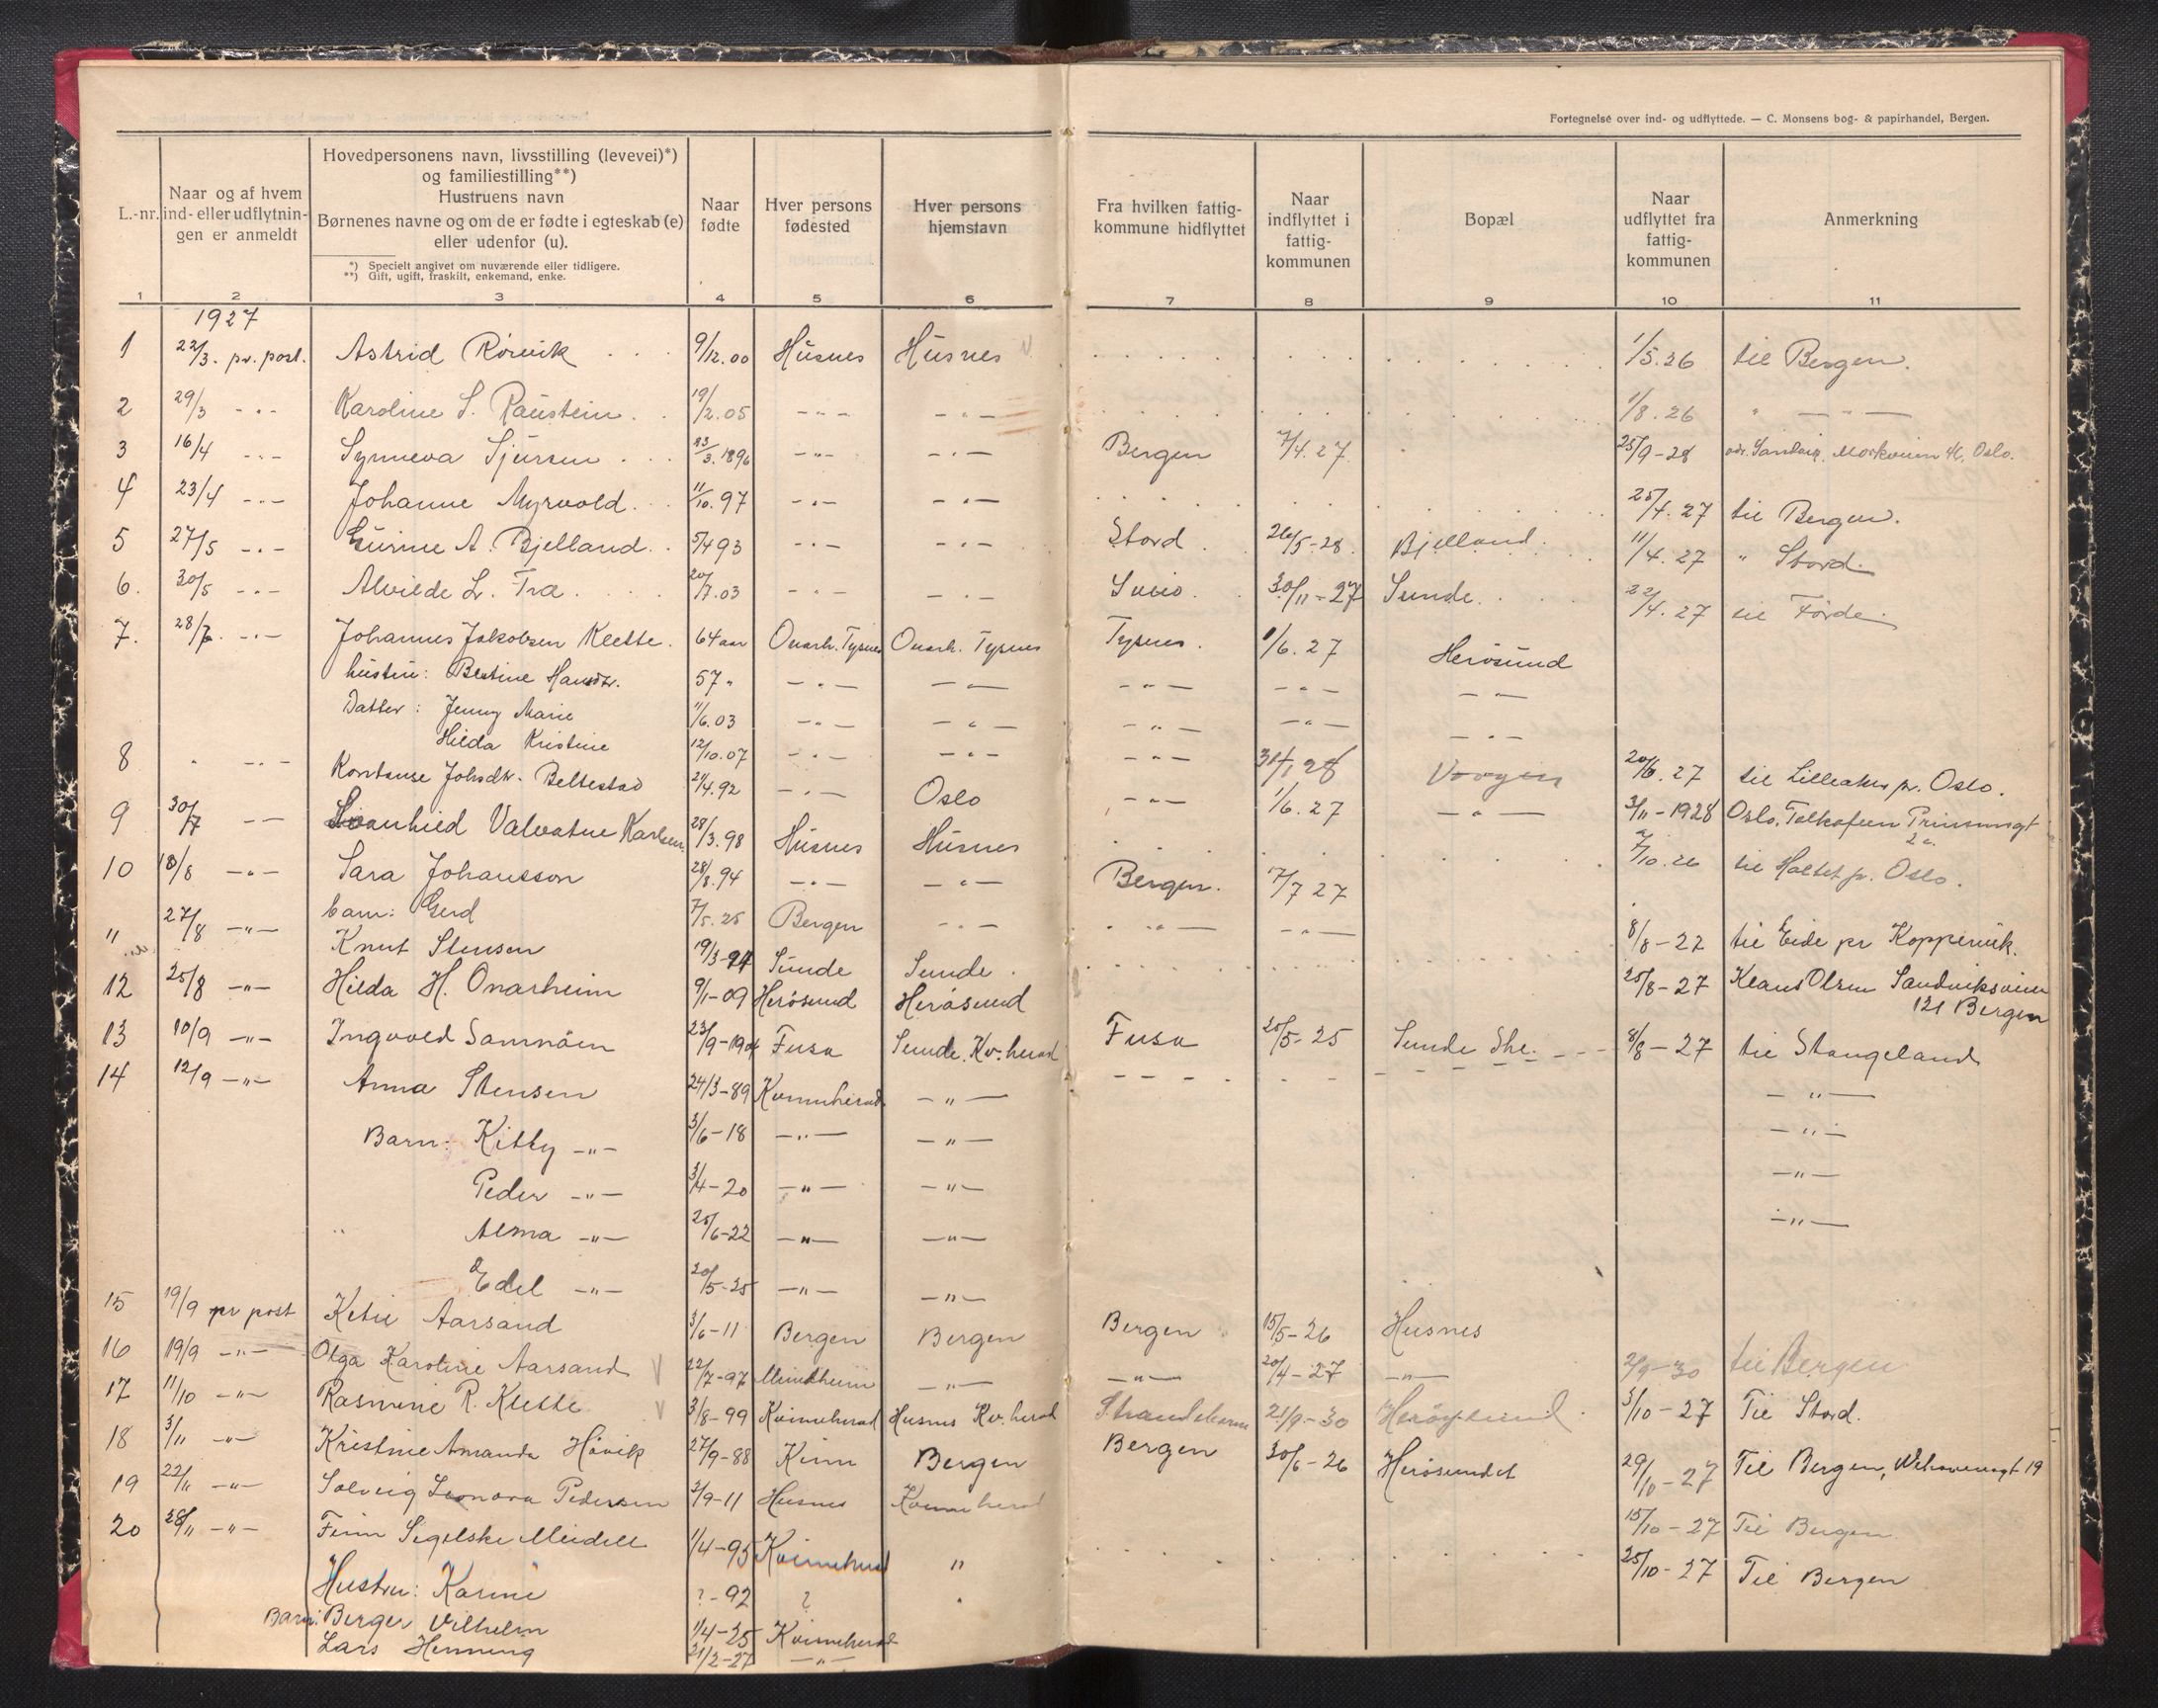 Fortegnelse over ind- og udflyttede. — C. Monsens bog- & papirhandel, Bergen.
L.-nr. | Naar og af hvem ind- eller udflytningen er anmeldt | Hovedpersonens navn, livsstilling (levevei)*) og familiestilling**) Hustruens navn Børnenes navne og om de er fødte i egteskab (e) eller udenfor (u). | Naar fødte | Hver persons fødested | Hver persons hjemstavn | Fra hvilken fattigkommune hidflyttet | Naar indflyttet i fattigkommunen | Bopæl | Naar udflyttet fra fattigkommunen | Anmerkning
*) Specielt angivet om nuværende eller tidligere.
**) Gift, ugift, fraskilt, enkemand, enke.
1 2 3 4 5 6 7 8 9 10 11
1927
1 22/3. pr. post. Astrid Rørvik 9/12.00 Husnes Husnes 1/5.26 til Bergen.
2 29/3 -"- Karoline S. Raustein 19/2.05 -"- -"- 1/8.26 " -"-
3 16/4 -"- Synneva Sjursen 23/3.1896 -"- -"- Bergen 7/4.27 25/9-28 Oslo.
4 23/4 -"- Johanne Myrvold 11/10.97 -"- -"- 25/4.27 til Bergen.
5 27/5 -"- Gurine A. Bjelland 5/4 93 -"- -"- Stord 26/5-28 Bjelland 11/4.27 " Stord
6. 30/5 -"- Alvilde L. Træ 20/7.03 -"- -"- Sveio 30/11-27 Sunde 22/4.27 til Førde
7. 28/6 -"- Johannes Jakobsen Klette. 64 aar Onarh. Tysnes Onarh. Tysnes Tysnes. 1/6.27 Herøsund
hustru: Bertine Hansdtr. 57 " -"- -"- -"- -"- -"-
Datter: Jenny Marie 11/6.03 -"- -"- -"- -"- -"-
Hilda Kristine 12/10.07 -"- -"- -"-
8 " -"- Konstanse Johsdtr. Beltestad 21/4.92 -"- Oslo -"- 1/6.27 -"- 20/6.27 til Lilleaker pr. Oslo.
9 30/7 -"- Svanhild Valvatne Karlsen 28/3.98 Husnes Husnes 3/11-1928 Oslo.
7/10.26 til Holtet pr. Oslo.
10 18/8 -"- Sara Johansson 28/8.94 -"- -"- Bergen. 7/7 27
barn: Gerd 7/5.25 Bergen -"- -"- -"-
11 27/8 -"- Knut Stensen 19/3-94 Sunde Sunde 8/8-27 til Eide pr Koppervik.
12 25/8 -"- Hilda H. Onarheim 9/1-09 Herøsund Herøsund 25/8-27 Klaus Olsen Sandviksveien
121 Bergen
13 10/9 -"- Ingvold Samnøen 23/9-1904 Fusa Sunde. Kv.herad Fusa 25/5-25 Sunde 8/8-27 til Stangeland
14 12/9 -"- Anna Stensen 24/3-89 Kvinnherad -"- -"-
Barn: Kitty -"- 3/6-18 -"- -"- -"-
Peder -"- 3/4-20 -"- -"- -"-
" Alma -"- 25/6-22 -"- -"- -"-
Edel -"- 20/5-25 -"- -"-
15 19/9 pr post Ketil Aarsand 3/6-11 Bergen Bergen Bergen 15/5-26 Husnes
16 19/9 -"- Olga Karoline Aarsand 22/7-97 -"- -"- 20/4-27 -"- 2/9-30 til Bergen
17 11/10 -"- Rasmine R. Klette 3/8-99 Kvinnherad Husnes Kv.herad Strandebarm 21/9-30 Herøysund 3/10-27 Til Stord.
18 3/11 -"- Kristine Amanda Håvik 27/9-88 Kinn Bergen Bergen 30/6-26 Herøsundet 29/10-27 Til Bergen, 19
19 22/11 -"- Solveig Leonora Pedersen 2/9-11 Husnes Kvinnherad 15/10-27 Til Bergen
20 28/11 -"- Finn Segelske Meidell 1/4-95 Kvinnherad " 25/10-27 Til Bergen
Hustru: Karine ?-92 ? "
Barn: Berger Vilhelm 1/4-25 Kvinnherad
Lars Henning 21/2-27 -"-